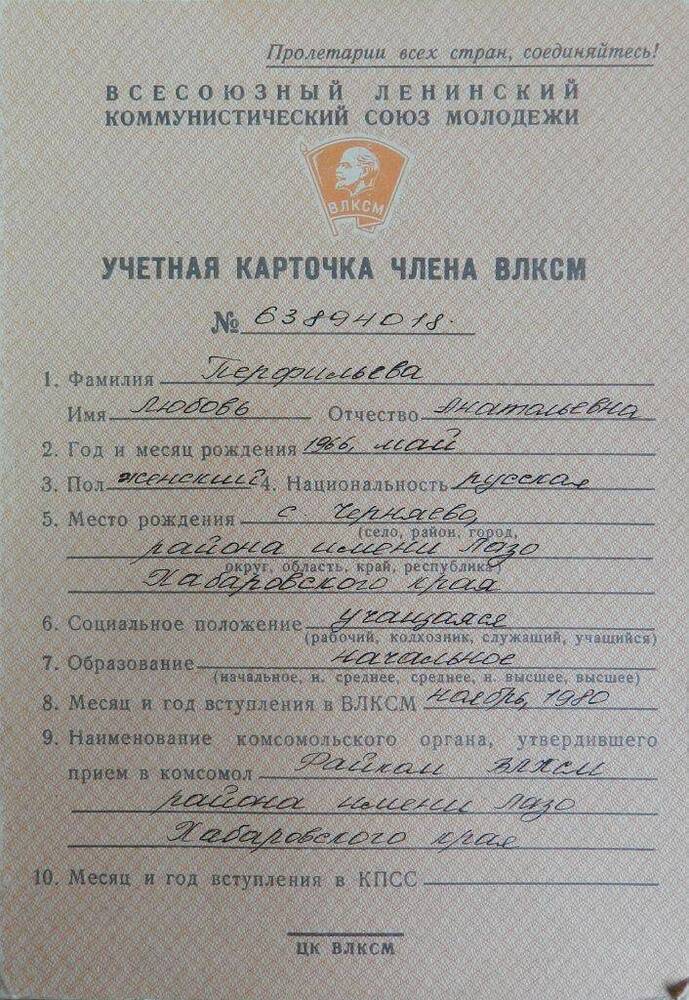 Пролетарии всех стран, соединяйтесь!
ВСЕСОЮЗНЫЙ ЛЕНИНСКИЙ
КОММУНИСТИЧЕСКИЙ СОЮЗ МОЛОДЕЖИ
ВЛКСМ
УЧЕТНАЯ КАРТОЧКА ЧЛЕНА ВЛКСМ
№ 63894018.
1. Фамилия Перфильева
Имя Любовь Отчество Анатольевна
2. Год и месяц рождения 1966, май
3. Пол женский 4. Национальность русская
5. Место рождения с Черняево,
(село, район, город,
района имени Лазо
округ, область, край, республика)
Хабаровского края
6. Социальное положение учащаяся
(рабочий, колхозник, служащий, учащийся)
7. Образование начальное
(начальное, н. среднее, среднее, н. высшее, высшее)
8. Месяц и год вступления в ВЛКСМ ноябрь, 1980
9. Наименование комсомольского органа, утвердившего
прием в комсомол Райком ВЛКСМ
района имени Лазо
Хабаровского края
10. Месяц и год вступления в КПСС
ЦК ВЛКСМ